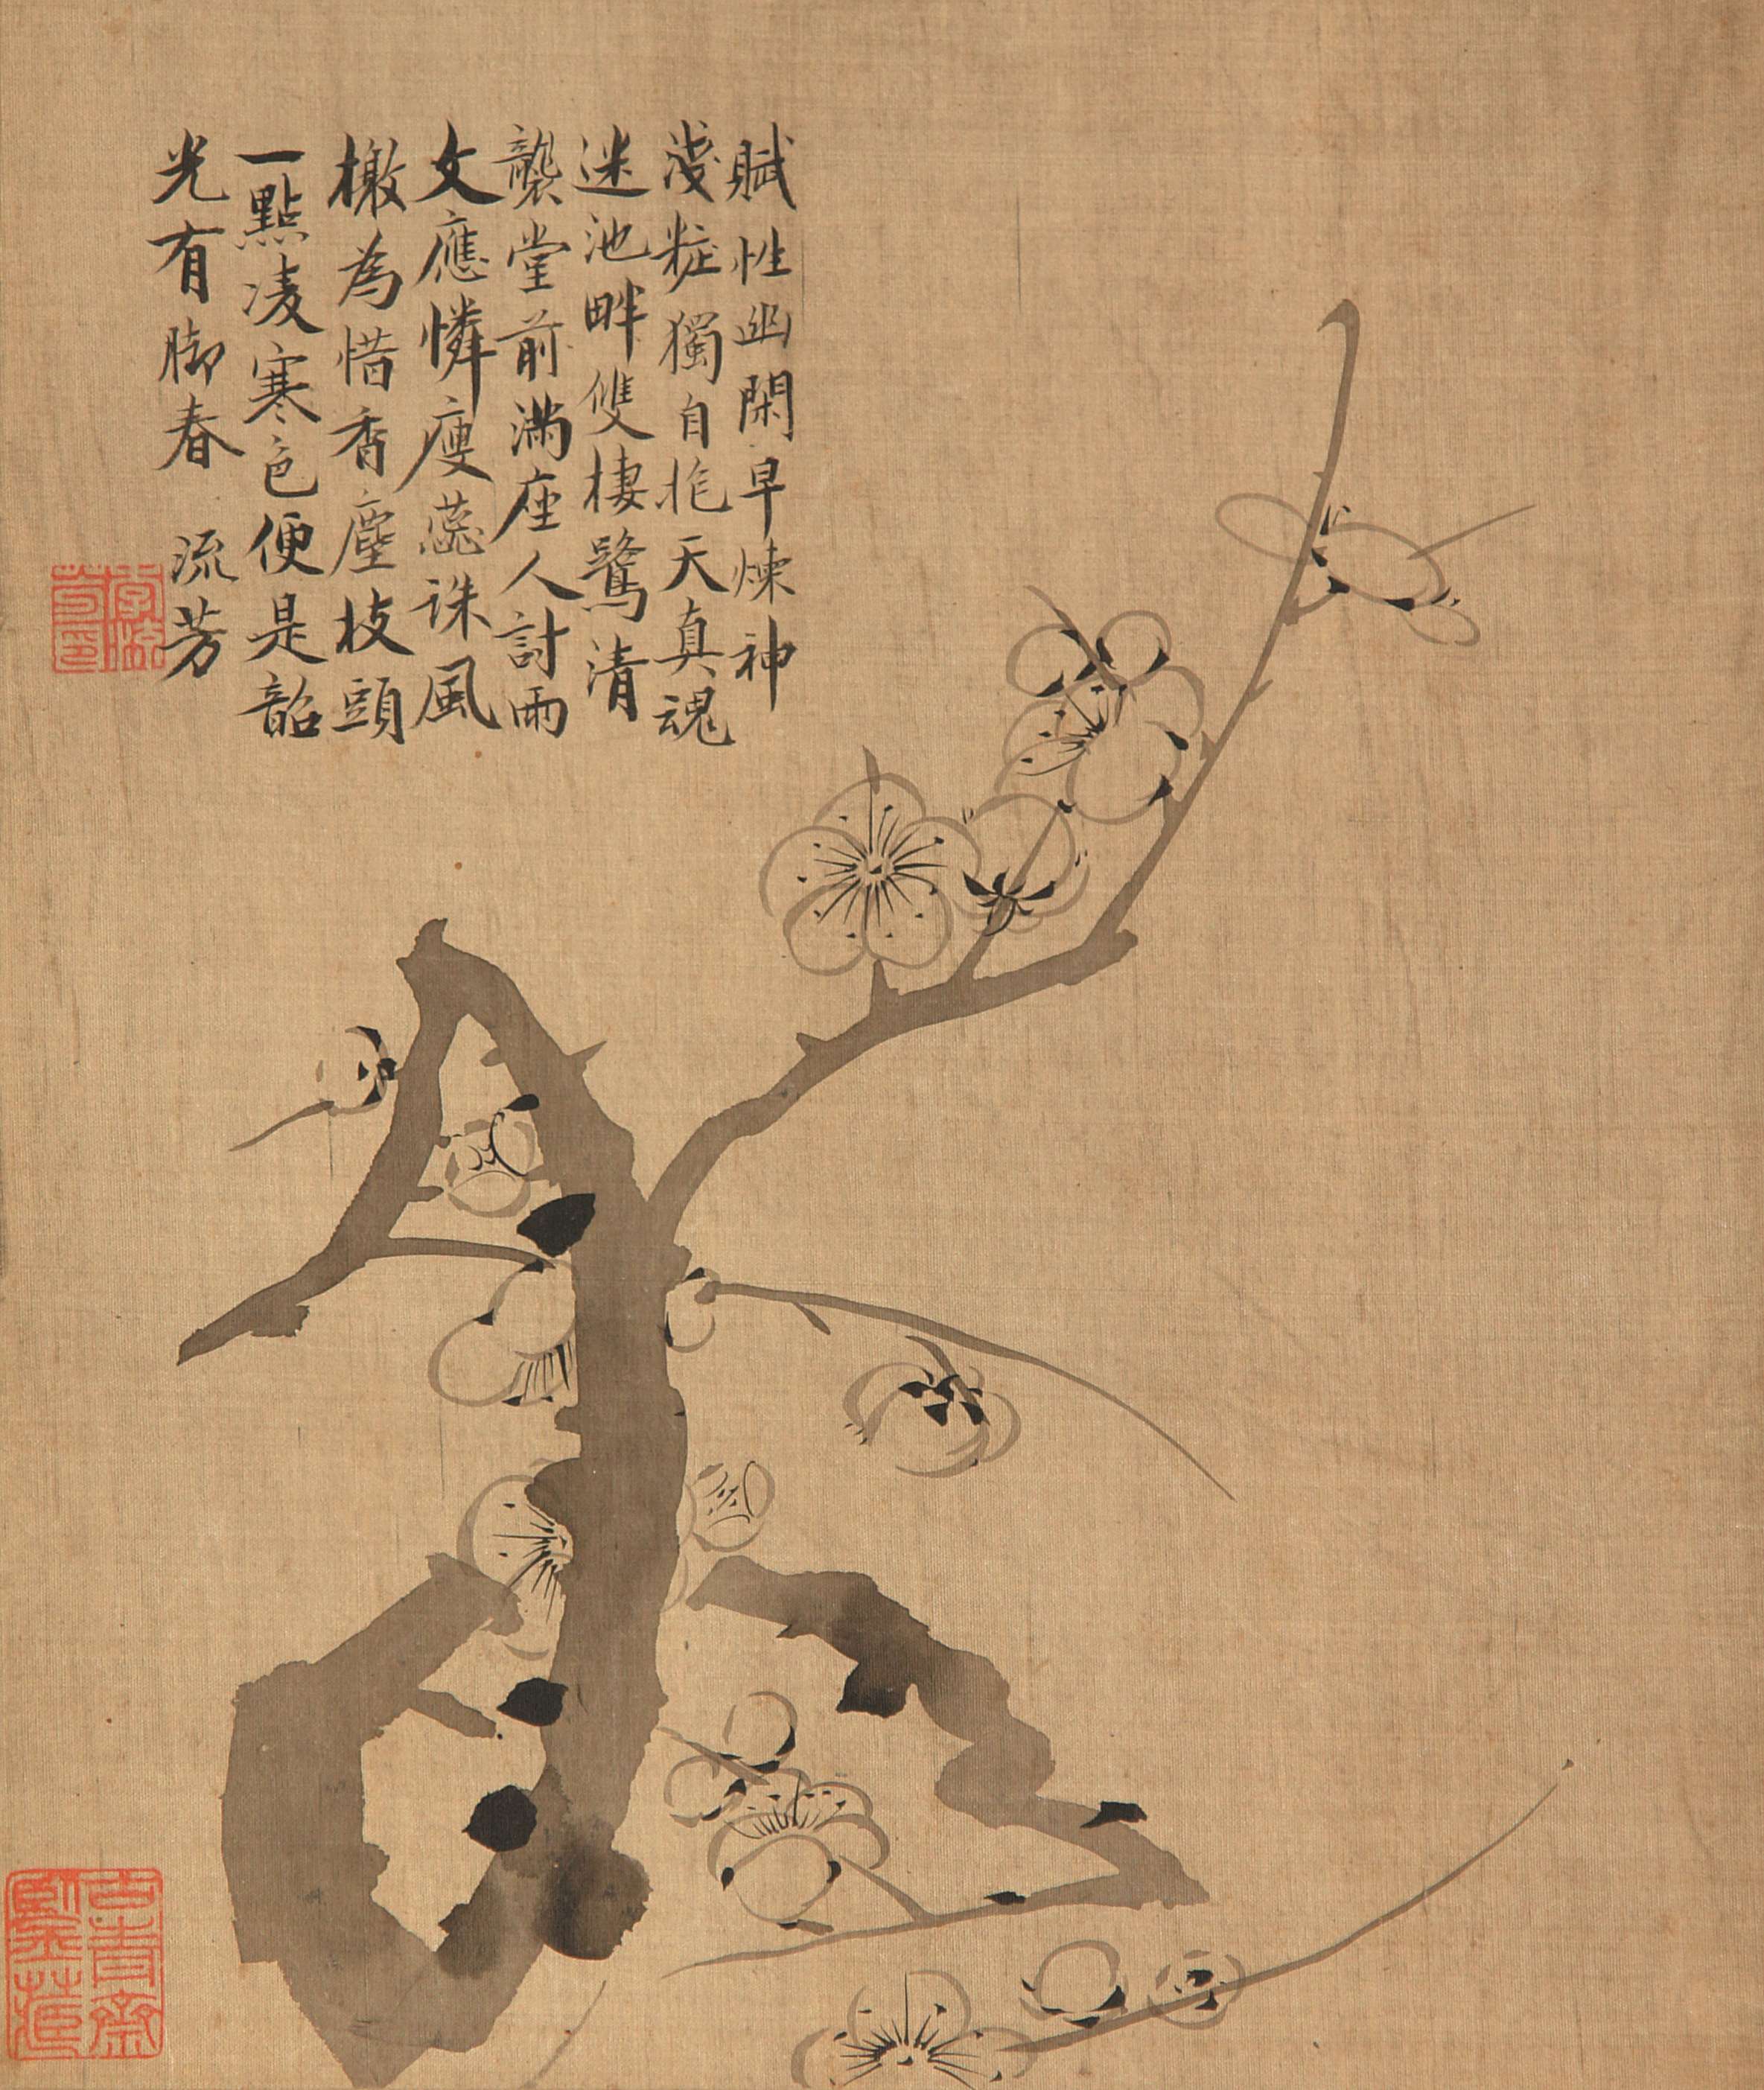 賦性幽閑早煉神
淺粧獨自抱天真魂
迷池畔雙棲鷺清
襲堂前滿座人討雨
文應憐瘦蕊誅風
檄為惜香塵枝頭
一點凌寒色便是韶
光有脚春 流芳
李流芳印